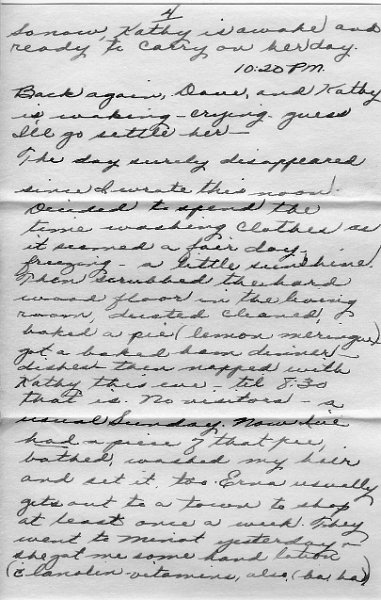 4
So now, Kathy is awake and
ready to carry on her day.
10:20 P.M.
Back again, Dave, and Kathy
is waking - crying. guess
I'll go settle her -
The day surely disappeared
since I wrote this noon.
Decided to spend the
time washing clothes as
it seemed a fair day,
freezing - a little sunshine.
Then scrubbed the hard
wood floor in the living
room, dusted, cleaned,
baked a pie (lemon meringue)
got a baked ham dinner -
dishes then napped with
Kathy this eve - til 8:30
that is. No visitors - a
usual Sunday. Now I've
had a piece of that pie,
bathed, washed my hair
and set it, too. Erna usually
gets out to a town to shop
at least once a week. They
went to Minot yesterday -
she got me some hand lotion
(c̄ lanolin - vitamins, also, (ha, ha)